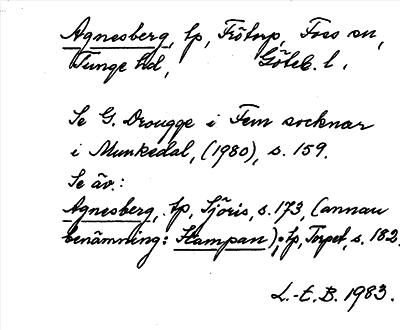 Agnesberg, tp, Frötorp, Foss sn,
Tunge hd, Göteb. l.
Se G. Drougge i Fem socknar
i Munkedal, (1980), s. 159.
Se äv.:
Agnesberg, tp, Sjöris, s. 173, (annan
benämning: Stampan); tp, Torpet, s. 182.
L.-E. B. 1983.